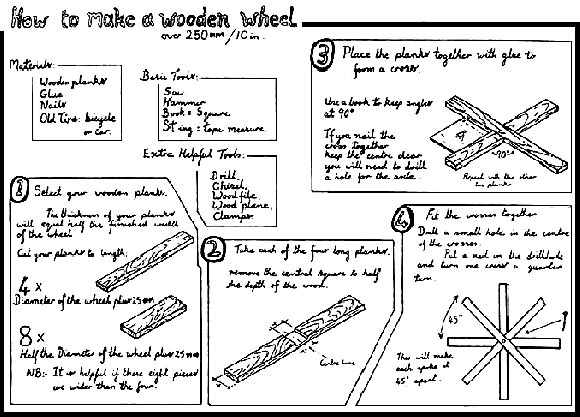 How to make a wooden wheel
over 250mm/10in.
Materials:
Wooden planks
Glue
Nails
Old Tire: bicycle
or car.
Basic Tools:
Saw
Hammer
Book = Square
String = tape measure
Extra Helpful Tools:
Drill,
Chisel,
Wood file,
Wood plane,
Clamps.
1 Select your wooden planks.
The thickness of your planks
will equal half the finished width
of the wheel.
Cut your planks to length.
4 x
Diameter of the wheel plus 25mm
8 x
Half the Diameter of the wheel plus 25mm
NB:- It is helpful if these eight pieces
are wider than the four.
2 Take each of the four long planks.
remove the central square to half
the depth of the wood.
Centre Line
3 Place the planks together with glue to
form a cross.
Use a book to keep angles
at 90°
If you nail the
cross together
keep the centre clear
you will need to drill
a hole for the axle.
90°
Repeat with the other
two planks
4 Put the crosses together
Drill a small hole in the centre
of the crosses.
Put a nail in the drill hole
and turn one cross a quarter
turn.
45°
This will make
each spoke at
45° apart.